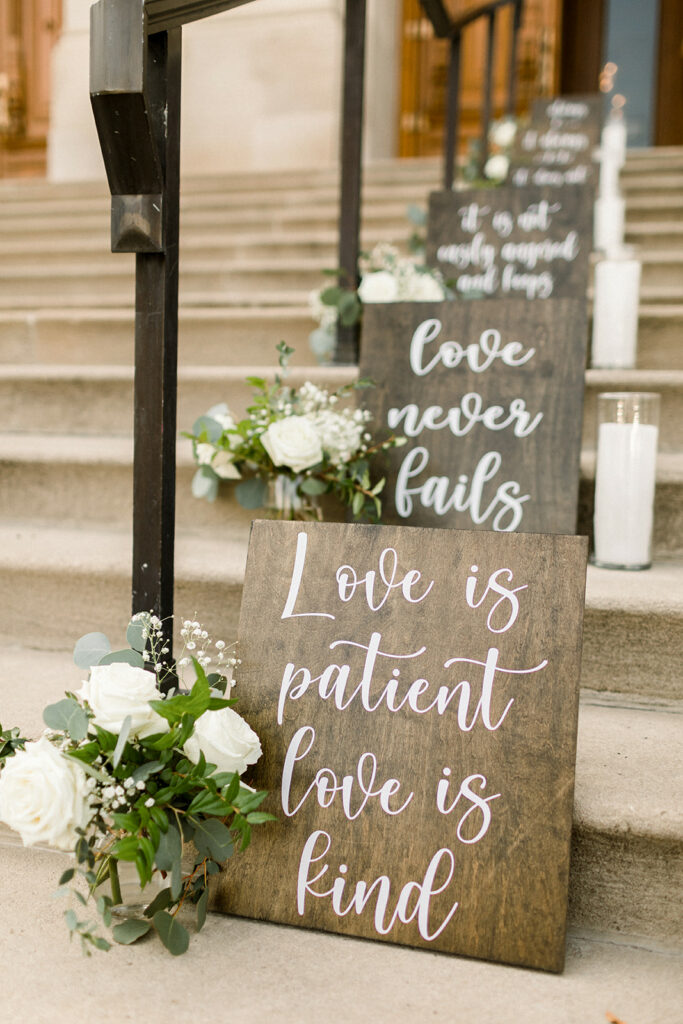 Love is
patient
love is
kind
love
never
fails
it is not
easily angered
and keeps
always
it always